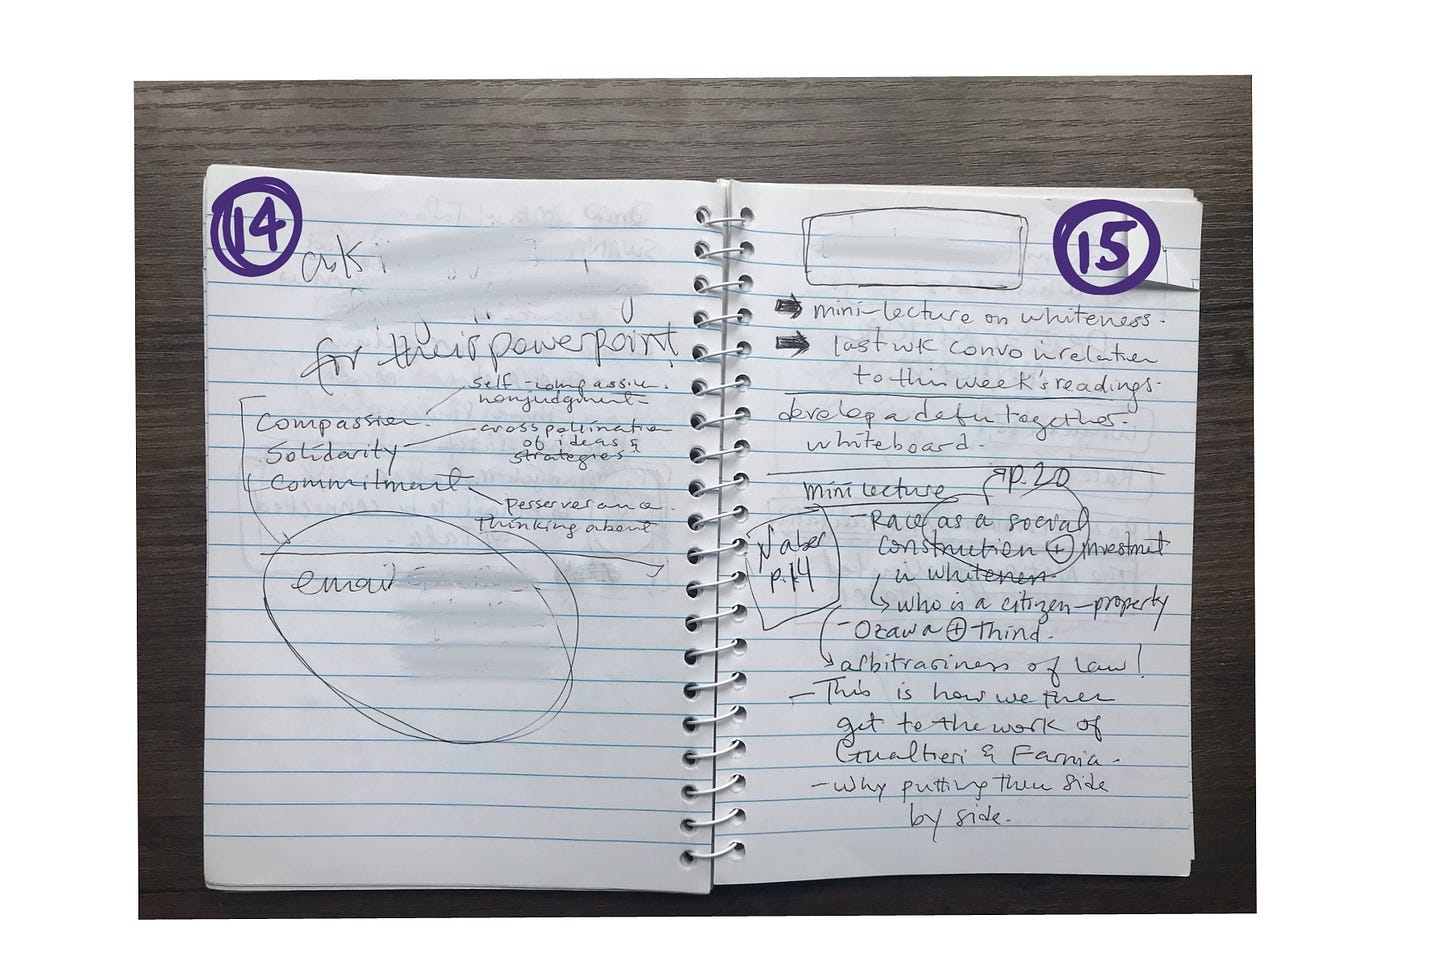 14
ask
for their powerpoint
self-compassion.
nonjudgment
Compassion.
Solidarity
cross pollination
of ideas &
strategies
Commitment
perserverance.
thinking about
email
15
mini-lecture on whiteness.
last wk convo in relation
to this week's readings.
develop a defn together.
whiteboard.
mini lecture
p.20
- Race as a social
construction + investment
in whiteness
who is a citizen-property
Naber
p.14
- Ozawa + Thind.
arbitrariness of law!
- This is how we then
get to the work of
Gualtieri & Farnia.
- why putting them side
by side.